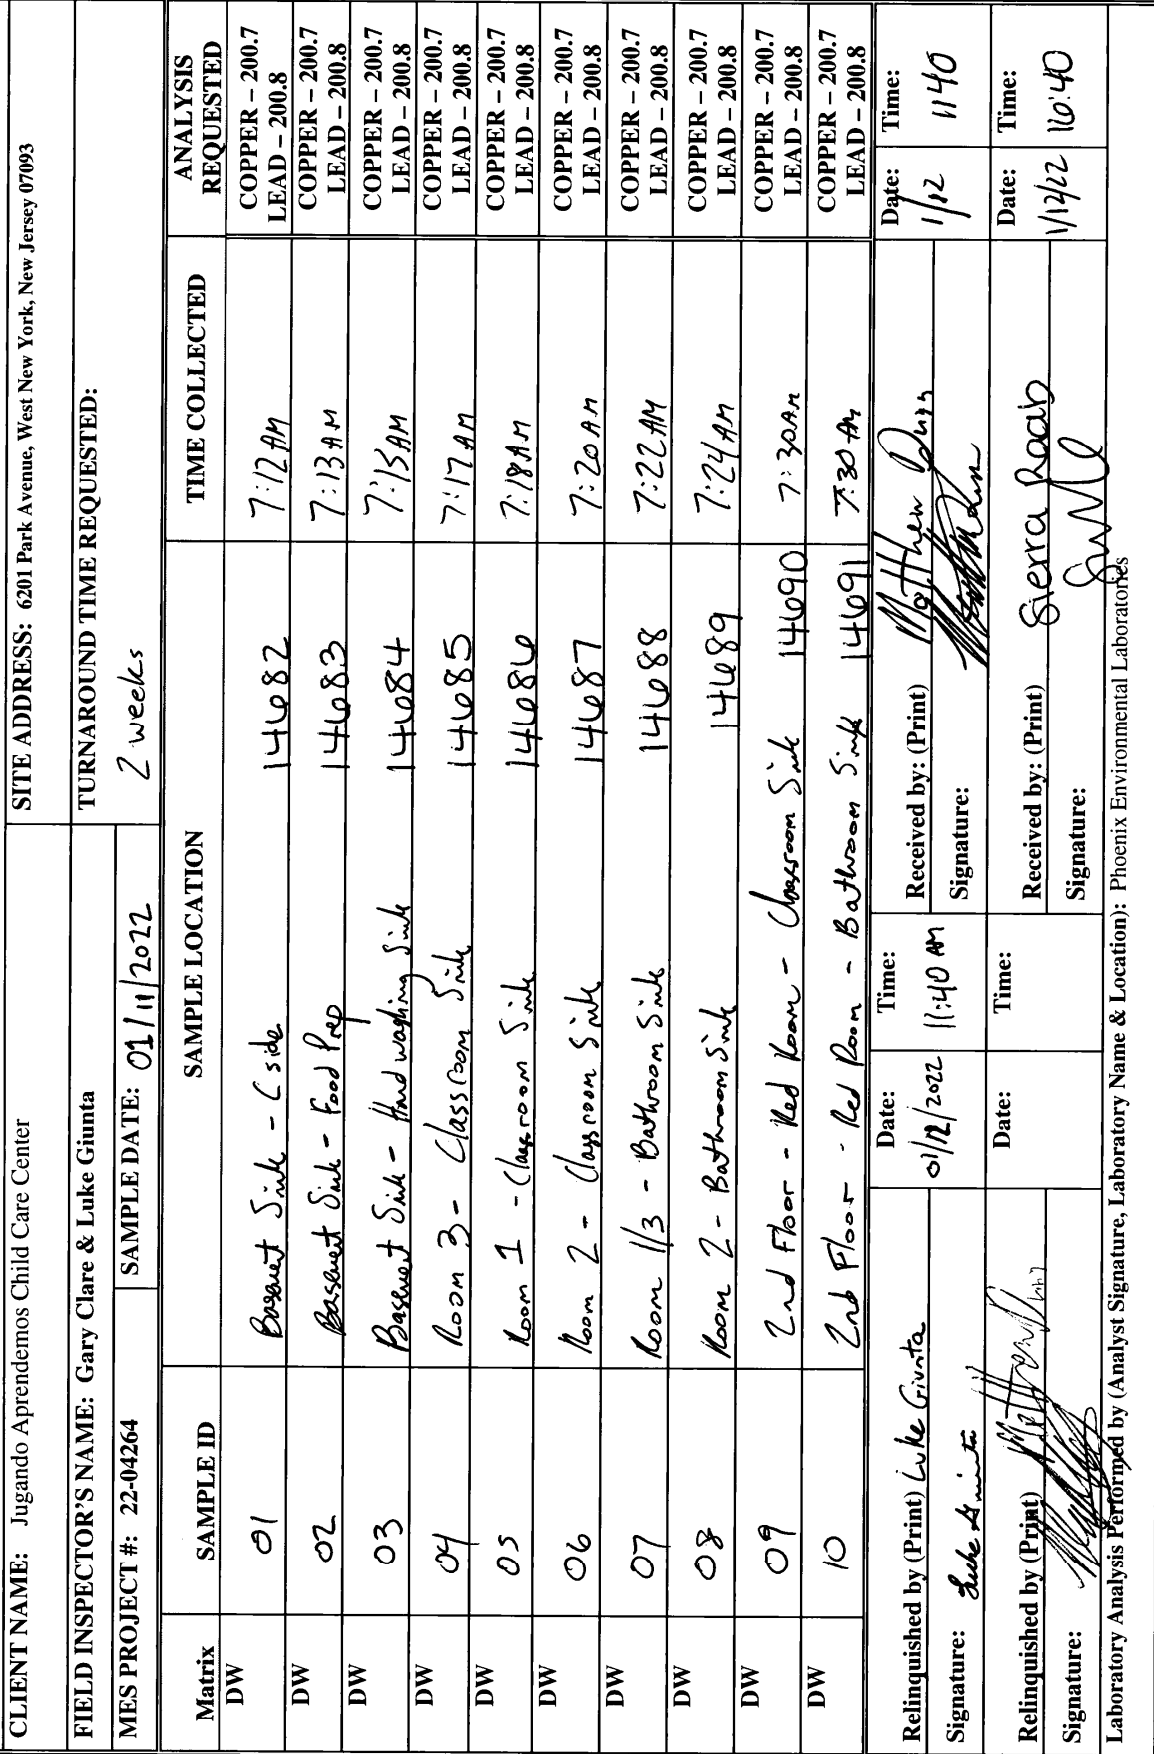 CLIENT NAME: Jugando Aprendemos Child Care Center
SITE ADDRESS: 6201 Park Avenue, West New York, New Jersey 07093
FIELD INSPECTOR'S NAME: Gary Clare & Luke Giunta
TURNAROUND TIME REQUESTED:
2 weeks
MES PROJECT #: 22-04264
SAMPLE DATE: 01/11/2022
Matrix SAMPLE ID SAMPLE LOCATION TIME COLLECTED ANALYSIS REQUESTED
DW 01 Basement Sink - C side 14682 7:12AM COPPER – 200.7 LEAD – 200.8
DW 02 Basement Sink - Food Prep 14683 7:13AM COPPER – 200.7 LEAD – 200.8
DW 03 Basement Sink - Hand washing Sink 14684 7:15AM COPPER – 200.7 LEAD – 200.8
DW 04 Room 3 - Classroom Sink 14685 7:17AM COPPER – 200.7 LEAD – 200.8
DW 05 Room 1 - Classroom Sink 14686 7:18AM COPPER – 200.7 LEAD – 200.8
DW 06 Room 2 - Classroom Sink 14687 7:20AM COPPER – 200.7 LEAD – 200.8
DW 07 Room 1/3 - Bathroom Sink 14688 7:22AM COPPER – 200.7 LEAD – 200.8
DW 08 Room 2 - Bathroom Sink 14689 7:24AM COPPER – 200.7 LEAD – 200.8
DW 09 2nd Floor - Red Room - Classroom Sink 14690 7:30AM COPPER – 200.7 LEAD – 200.8
DW 10 2nd Floor - Red Room - Bathroom Sink 14691 7:30AM COPPER – 200.7 LEAD – 200.8
Relinquished by (Print) Luke Giunta
Signature: Luke Giunta
Date: 01/12/2022
Time: 11:40 AM
Received by: (Print) Matthew Dunn
Signature:
Date: 1/12
Time: 1140
Relinquished by (Print)
Signature:
Date:
Time:
Received by: (Print) Sierra Roab
Signature:
Date: 1/12/22
Time: 16:40
Laboratory Analysis Performed by (Analyst Signature, Laboratory Name & Location): Phoenix Environmental Laboratories